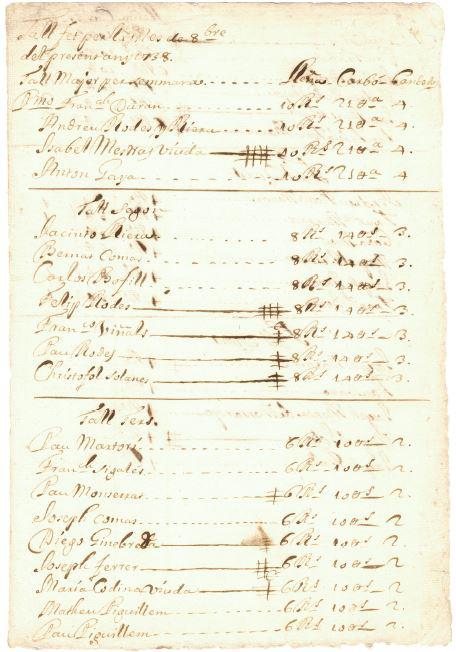 Tall fet per lo Mes de 8bre
del present any 1738.
Tall Major per semmana Lleñas Carbó Candelas
Pmo Franch Duran 10 Rs 218a 4.
Andreu Rodes y Riera 10 Rs 218a 4.
Isabel Mestras Viuda 10 Rs 218a 4.
Anton Gaya 10 Rs 218a 4
Tall Sego
Jacinto Riera 8 Rs 148s 3.
Bernat Comas 8 Rs 148s 3.
Carlos Bofill 8 Rs 148s 3.
Felip Rodes 8 Rs 148s 3.
Franco Viñals 8 Rs 148s 3.
Pau Rodes 8 Rs 148s 3.
Christofol Solanes 8 Rs 148s 3.
Tall Ters
Pau Martori 6 Rs 108s 2.
Franch Sigalés 6 Rs 108s 2.
Pau Monserras 6 Rs 108s 2.
Joseph Comas 6 Rs 108s 2
Diego Ginebreda 6 Rs 108s 2.
Joseph Ferrer 6 Rs 108s 2
Maria Codina Viuda 6 Rs 108s 2
Matheu Piguillem 6 Rs 108s 2.
Pau Piguillem 6 Rs 108s 2.